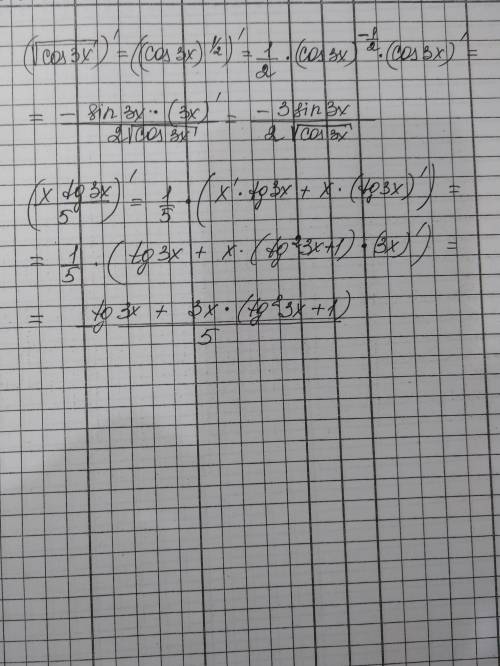 (√cos3x)' = ((cos3x)^{1/2})' = 1/2 · (cos3x)^{-1/2} · (cos3x)' =
= - sin3x · (3x)' / 2√cos3x = -3sin3x / 2√cos3x
(x tg3x / 5)' = 1/5 · (x' · tg3x + x · (tg3x)') =
= 1/5 · (tg3x + x · (tg²3x+1) · (3x)') =
= tg3x + 3x · (tg²3x+1) / 5